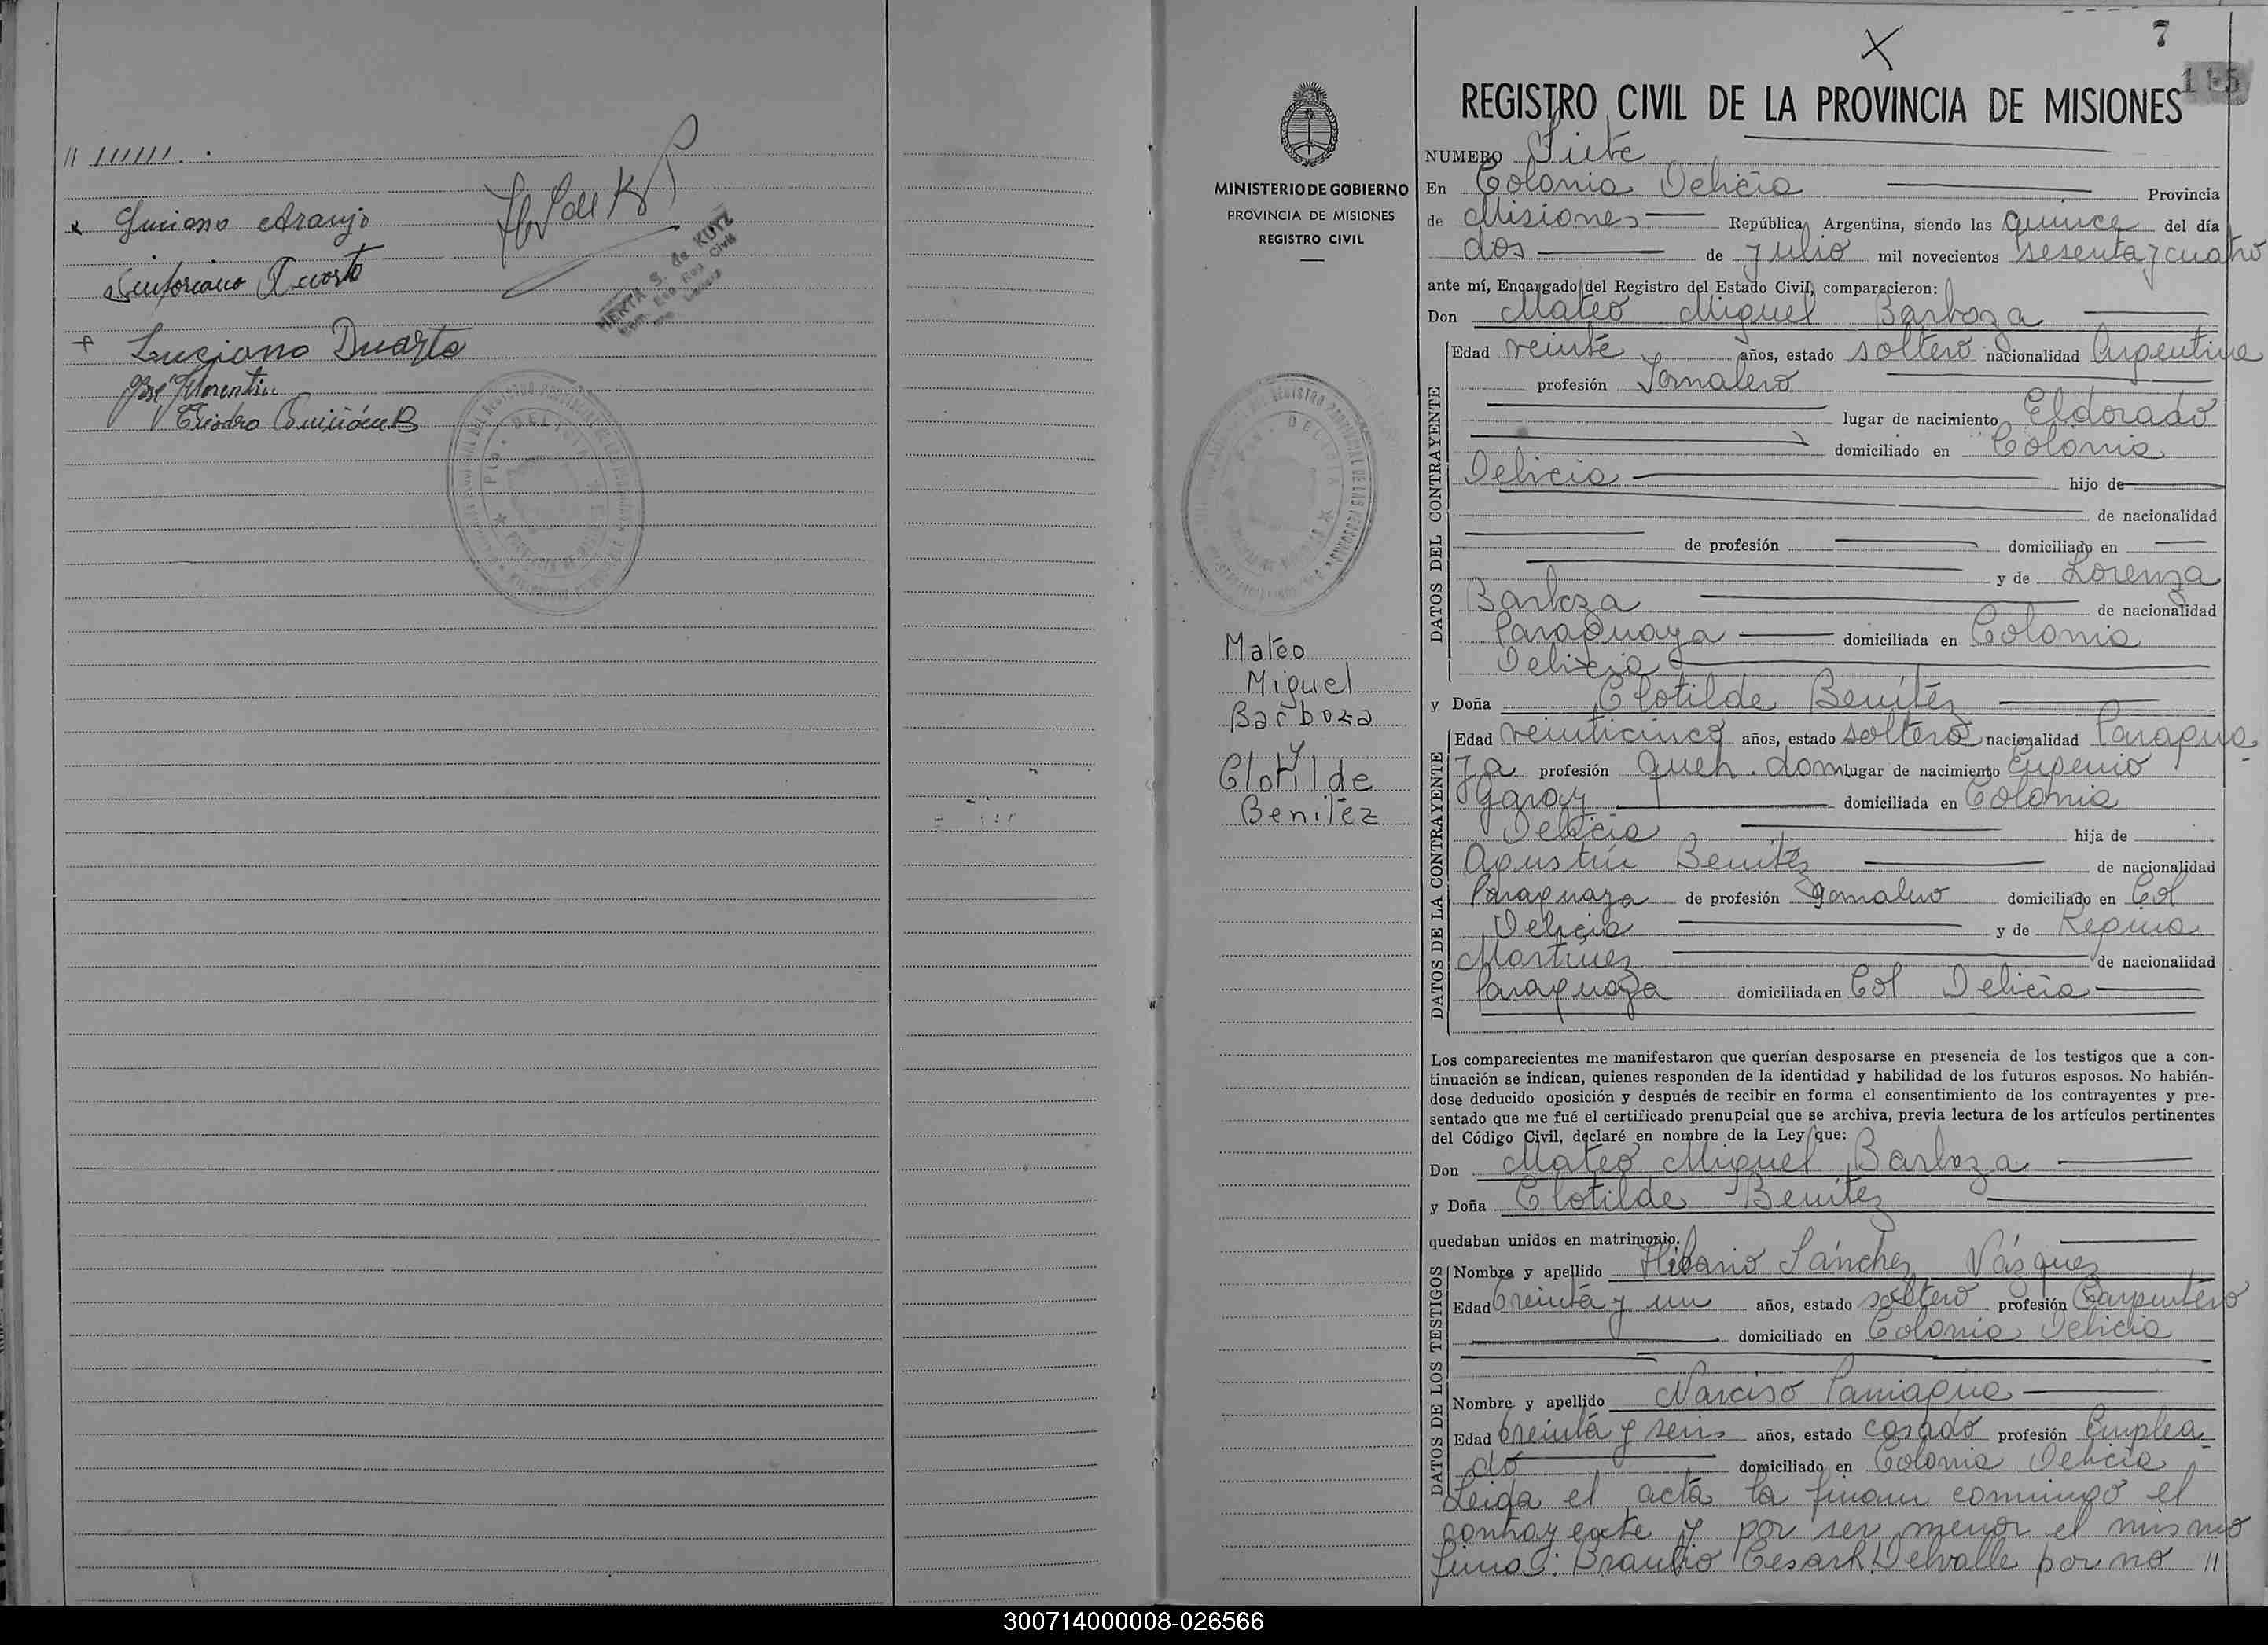 // //////.
Luciano Araujo
Sinforiano Acosta
Luciano Duarte
José Florentin
HERTA S. de KUTZ
7
115
REGISTRO CIVIL DE LA PROVINCIA DE MISIONES
MINISTERIO DE GOBIERNO
PROVINCIA DE MISIONES
REGISTRO CIVIL
Mateo
Miguel
Barboza
y
Clotilde
Benitez
NUMERO Siete
En Colonia Delicia Provincia
de Misiones República Argentina, siendo las quince del día
dos de Julio mil novecientos sesenta y cuatro
ante mí, Encargado del Registro del Estado Civil, comparecieron:
Don Mateo Miguel Barboza
DATOS DEL CONTRAYENTE
Edad veinte años, estado soltero nacionalidad Argentina
profesión Jornalero
lugar de nacimiento Eldorado
domiciliado en Colonia
Delicia hijo de
de nacionalidad
de profesión domiciliado en
y de Lorenza
Barboza de nacionalidad
Paraguaya domiciliada en Colonia
Delicia
y Doña Clotilde Benítez
DATOS DE LA CONTRAYENTE
Edad veinticinco años, estado soltera nacionalidad Paragua
ya profesión queh. dom lugar de nacimiento Eugenio
Garay domiciliada en Colonia
Delicia hija de
Agustín Benítez de nacionalidad
Paraguaya de profesión Jornalero domiciliado en Col
Delicia y de Regina
Martínez de nacionalidad
Paraguaya domiciliada en Col Delicia
Los comparecientes me manifestaron que querían desposarse en presencia de los testigos que a con-
tinuación se indican, quienes responden de la identidad y habilidad de los futuros esposos. No habién-
dose deducido oposición y después de recibir en forma el consentimiento de los contrayentes y pre-
sentado que me fué el certificado prenupcial que se archiva, previa lectura de los artículos pertinentes
del Código Civil, declaré en nombre de la Ley que:
Don Mateo Miguel Barboza
y Doña Clotilde Benítez
quedaban unidos en matrimonio.
DATOS DE LOS TESTIGOS
Nombre y apellido Sánchez Vásquez
Edad treinta y un años, estado soltero profesión Carpintero
domiciliado en Colonia Delicia
Nombre y apellido Narciso Paniagua
Edad treinta y seis años, estado casado profesión Emplea
do domiciliado en Colonia Delicia
Leida el acta la firman conmigo el
contrayente y por ser menor el mismo
firma: Braulio Cesar Delvalle por no //
300714000008-026566